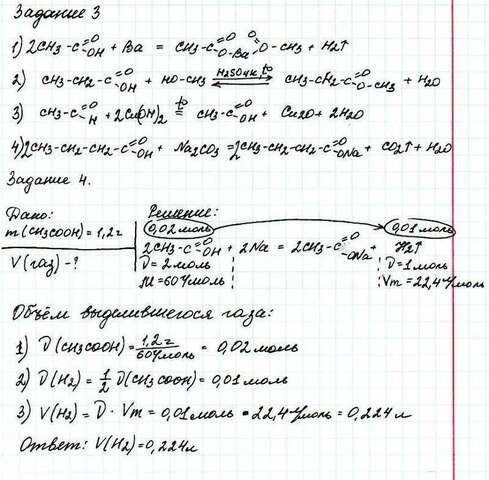 Задание 3
1) 2CH3-C=O OH + Ba = CH3-C=O O-Ba-O O=C-CH3 + H2↑
2) CH3-CH2-C=O OH + HO-CH3 H2SO4 к, t° ⇄ CH3-CH2-C=O O-CH3 + H2O
3) CH3-C=O H + 2Cu(OH)2 t° = CH3-C=O OH + Cu2O + 2H2O
4) 2CH3-CH2-CH2-C=O OH + Na2CO3 = 2CH3-CH2-CH2-C=O ONa + CO2↑ + H2O
Задание 4.
Дано: Решение:
m(CH3COOH)=1,2г 0,02 моль 0,01 моль
V(газ)-? 2CH3-C=O OH + 2Na = 2CH3-C=O ONa + H2↑
ν=2моль ν=1моль
M=60г/моль Vm=22,4л/моль
Объём выделившегося газа:
1) ν(CH3COOH)=1,2г/60г/моль = 0,02 моль
2) ν(H2)=1/2 ν(CH3COOH)=0,01 моль
3) V(H2)=ν · Vm = 0,01моль · 22,4л/моль = 0,224 л
Ответ: V(H2)=0,224л